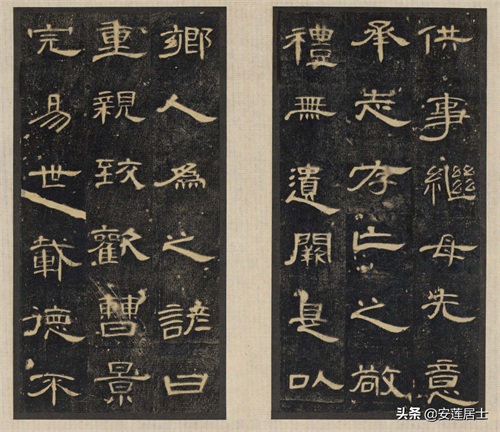 供事繼母先意
承志存亡之敬
禮無遺闕是以
鄉人為之諺曰
重親致歡曹景
完易世載德不
头条@安莲居士